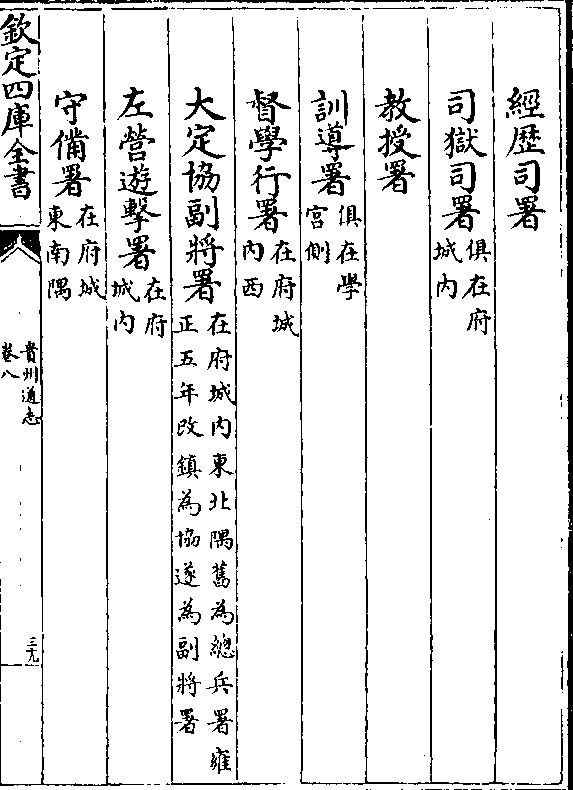 經歷司署
司獄司署俱在府城内
教授署
訓導署俱在學宫側
督學行署在府城内西
大定協副將署在府城内東北隅舊為總兵署雍正五年改鎮為協遂為副將署
左營遊擊署在府城内
守備署在府城東南隅
欽定四庫全書
貴州通志
卷八
三九